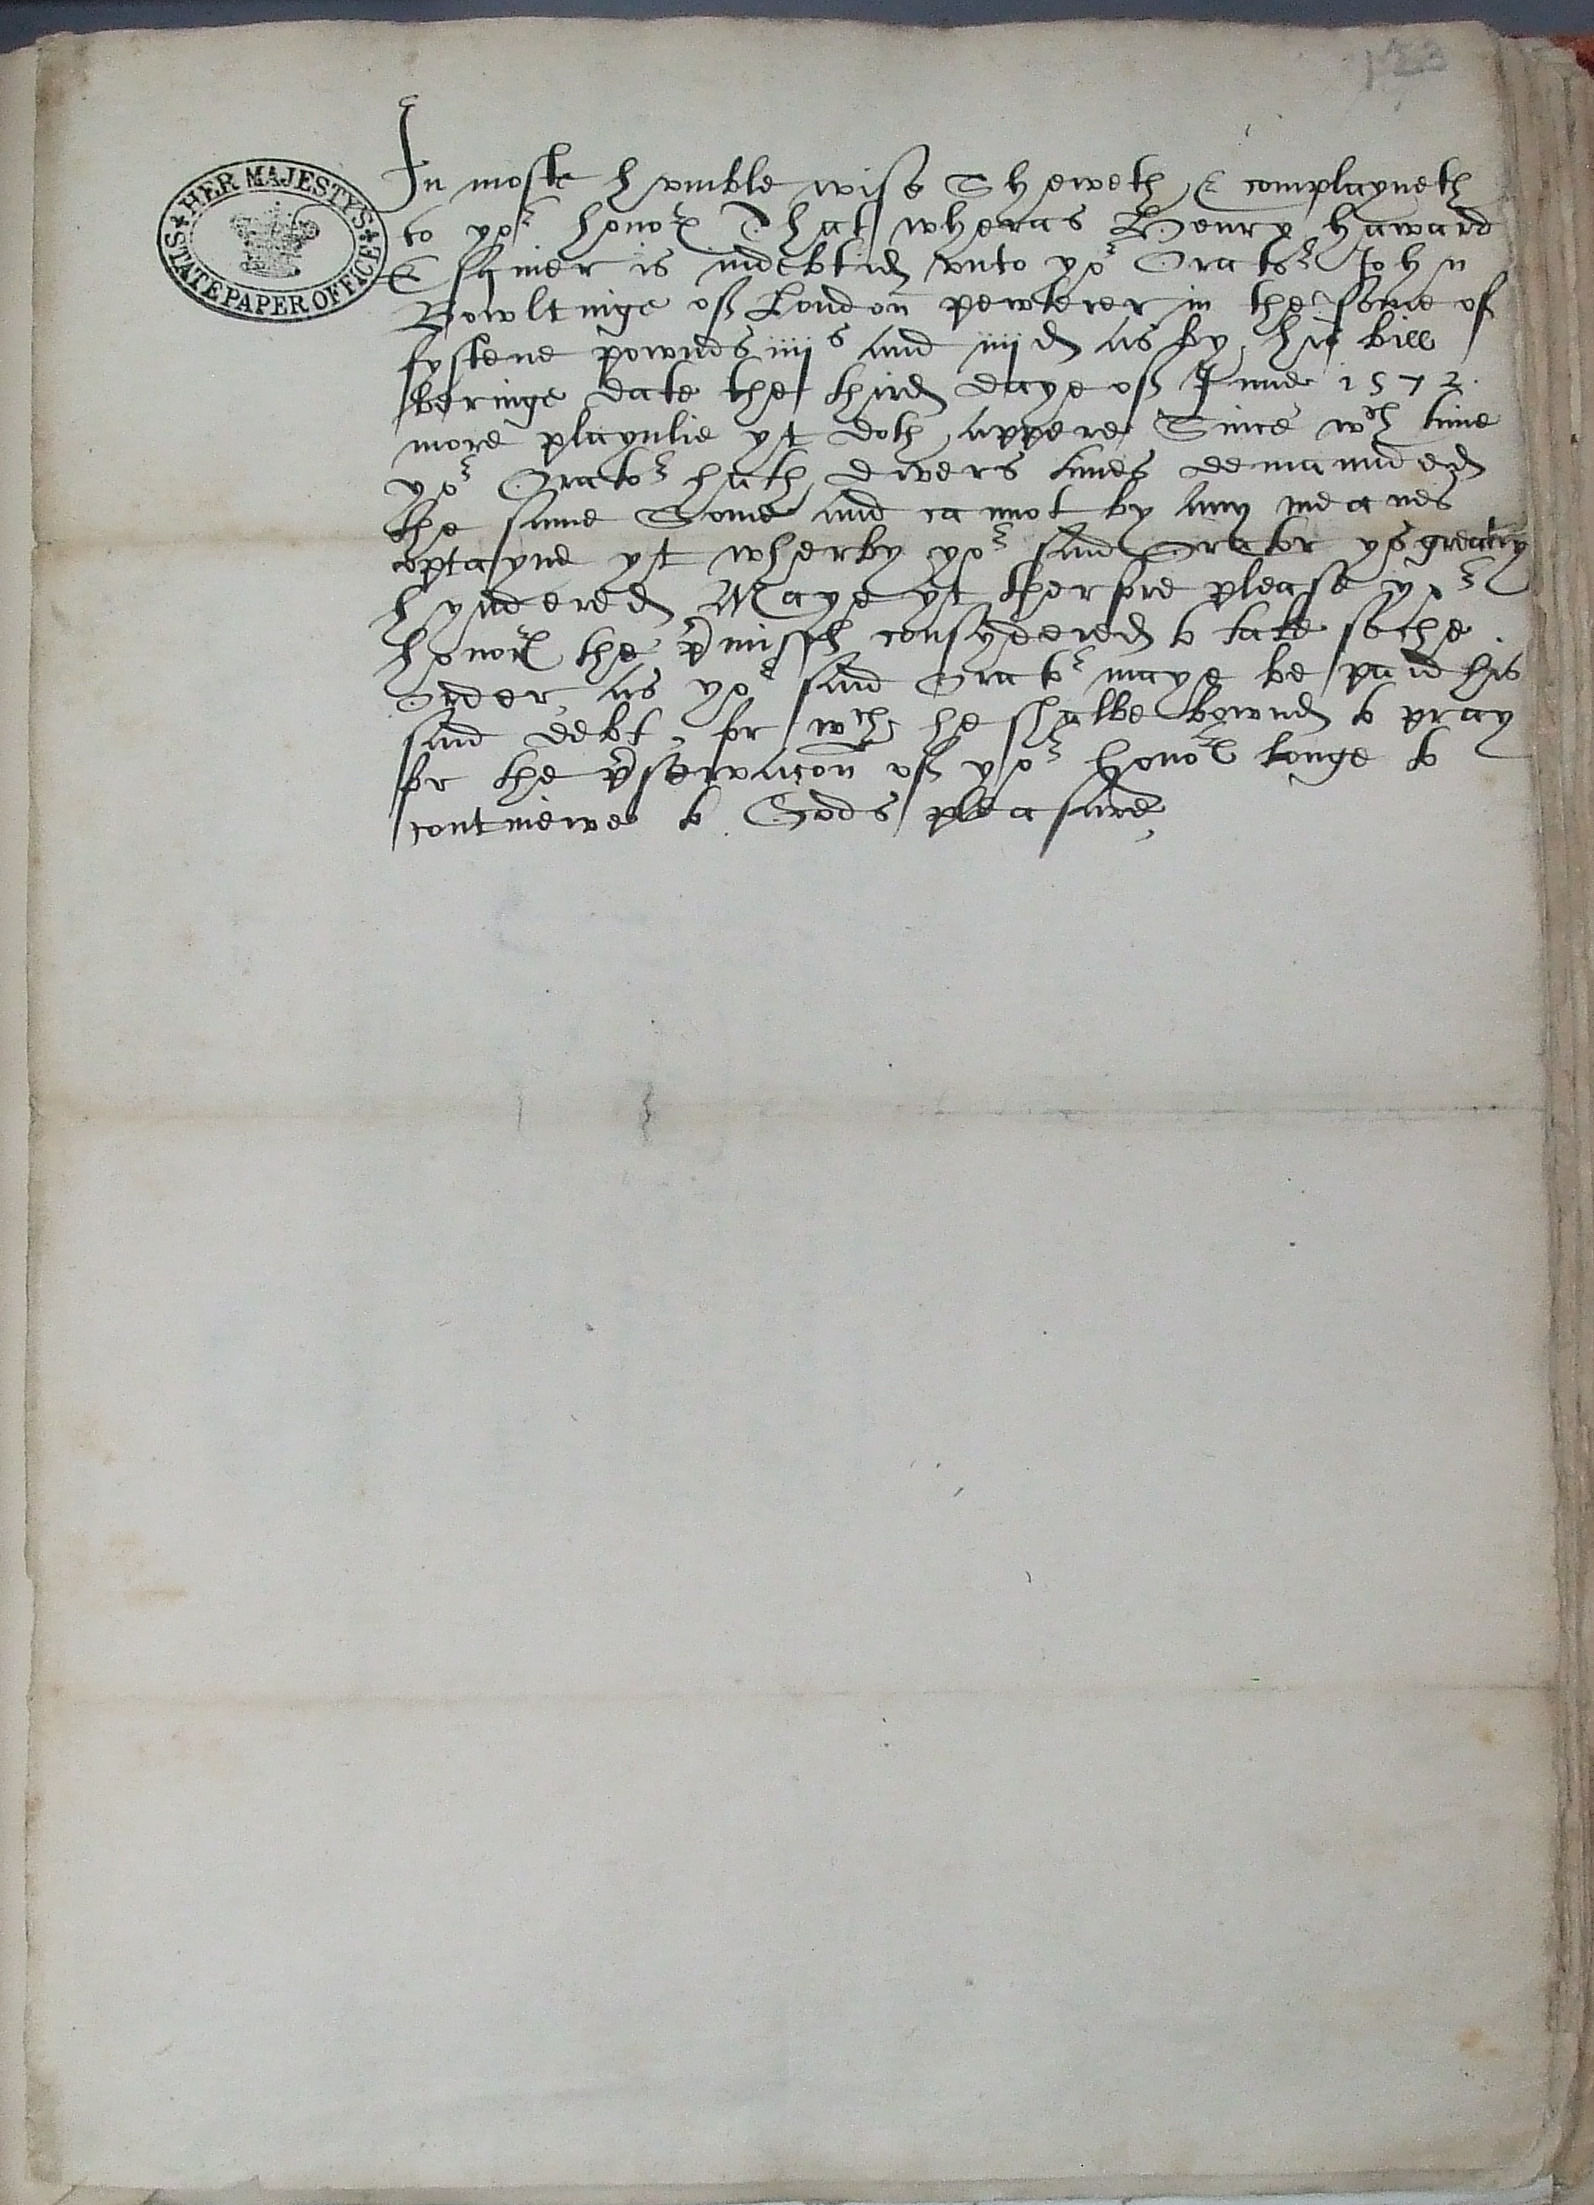 123
HER MAJESTYS
STATE PAPER OFFICE
In moste humble wise Sheweth & complayneth
to yor honor That wheras Henry Haward
Esquier is indebtid vnto yor Orator John
Bowltinge off London pewterer in the some of
fyftene pownds iiijs and iiijd as by his bill
beringe date the third daye off June 1572.
more playnlie yt doth appere Since wch time
yor Orator hath divers times demaunded
the same Some and cannot by any meanes
optayne yt wherby yor said Orator ys greatly
hyndered Maye yt therfore please yor
honor the pmiss consydered to take soche
Order as yor said Orator maye be paid his
said debt, for wch he shalbe bownd to pray
for the pservacon off yor honor longe to
contniewe to Gods pleasure